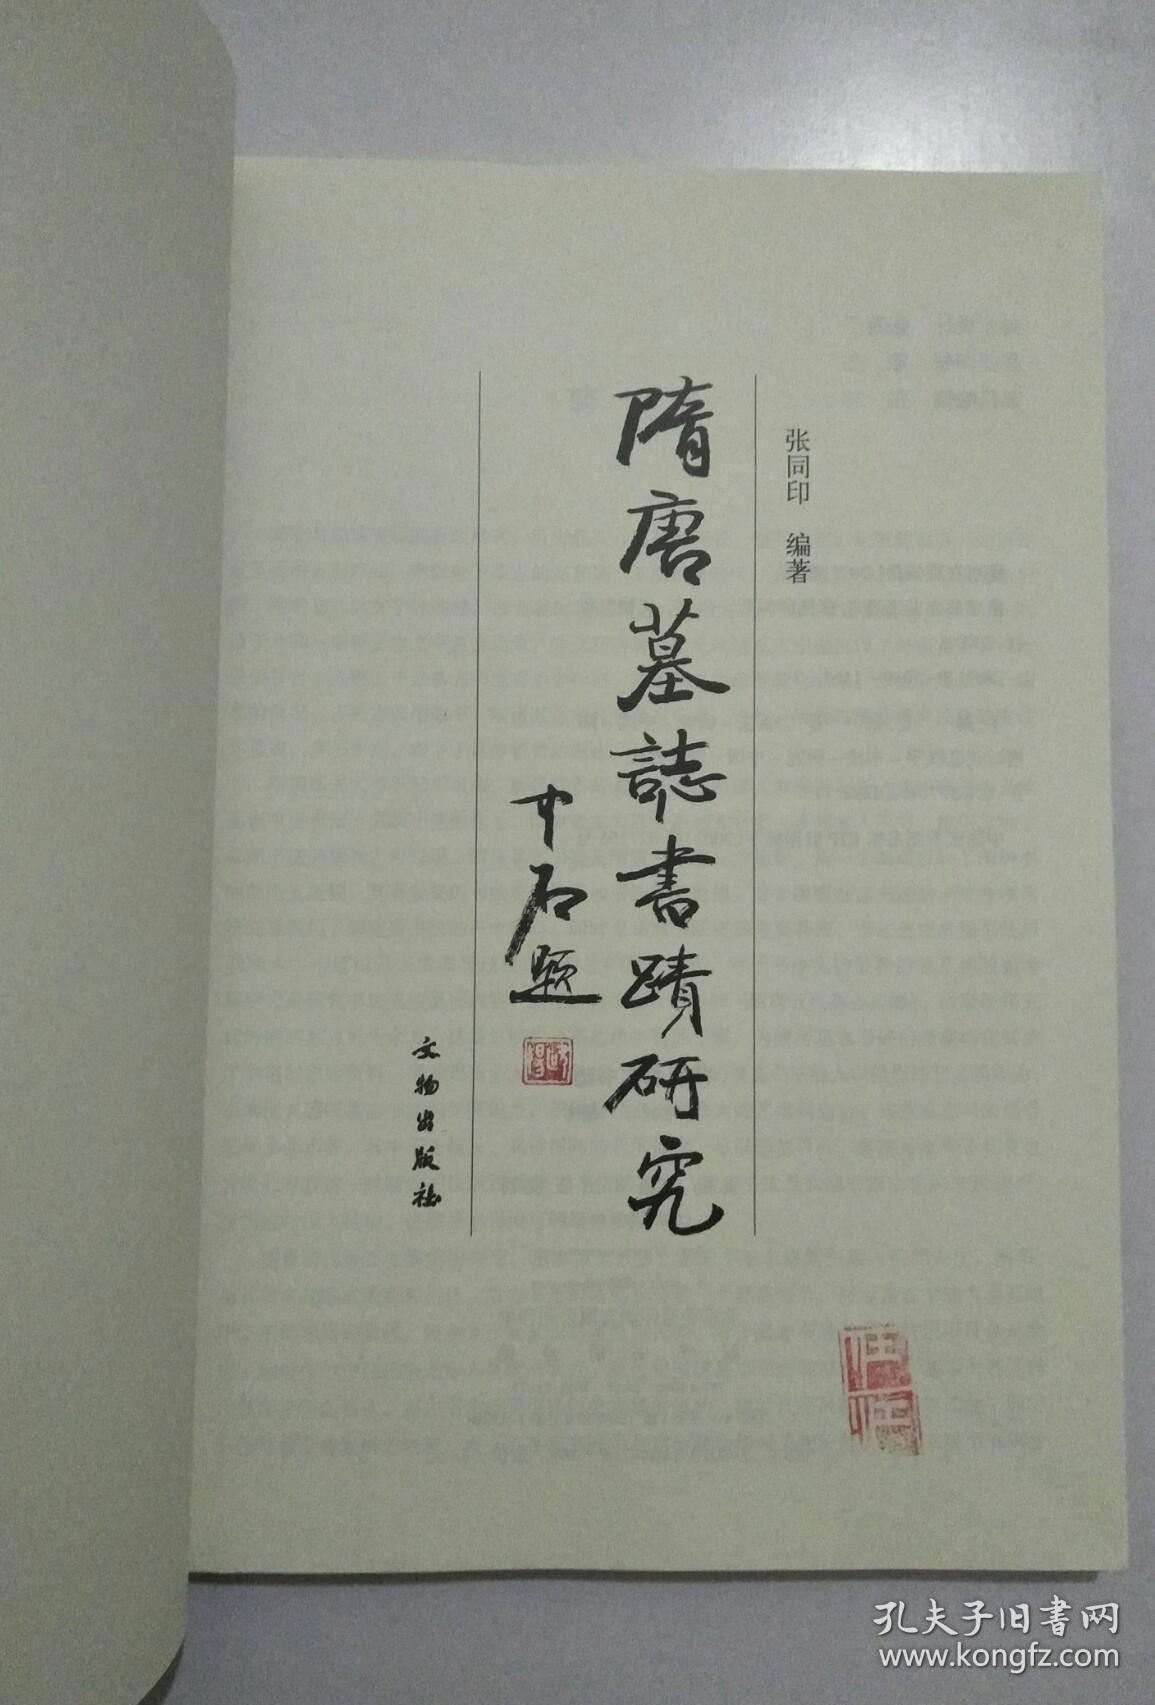 张同印 编著
隋唐墓誌書蹟研究
中石題
文物出版社
孔夫子旧書网
www.kongfz.com